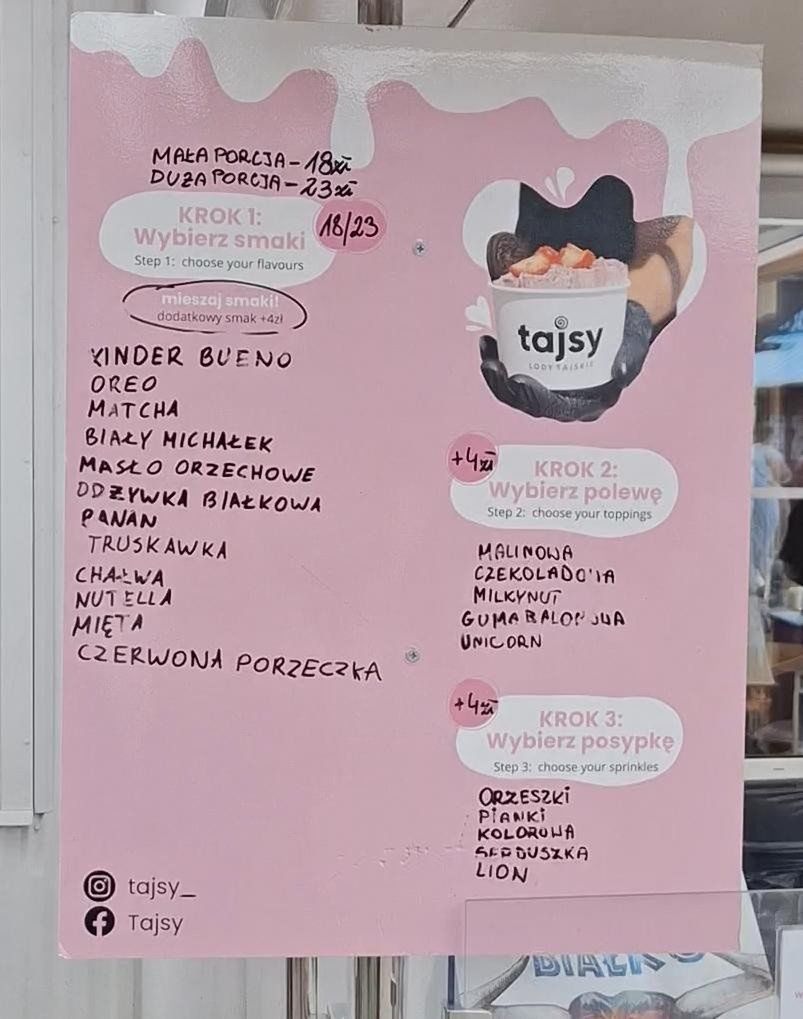 MAŁA PORCJA - 18zł
DUŻA PORCJA - 23zł
KROK 1:
Wybierz smaki
18/23
Step 1: choose your flavours
mieszaj smaki!
dodatkowy smak +4zł
KINDER BUENO
OREO
MATCHA
BIAŁY MICHAŁEK
MASŁO ORZECHOWE
ODŻYWKA BIAŁKOWA
BANAN
TRUSKAWKA
CHAŁWA
NUTELLA
MIĘTA
CZERWONA PORZECZKA
tajsy
LODY TAJSKIE
+4zł
KROK 2:
Wybierz polewę
Step 2: choose your toppings
MALINOWA
CZEKOLADOWA
MILKYNUT
GUMA BALONOWA
UNICORN
+4zł
KROK 3:
Wybierz posypkę
Step 3: choose your sprinkles
ORZESZKI
PIANKI
KOLOROWA
SERDUSZKA
LION
tajsy_
Tajsy
BIAŁKO